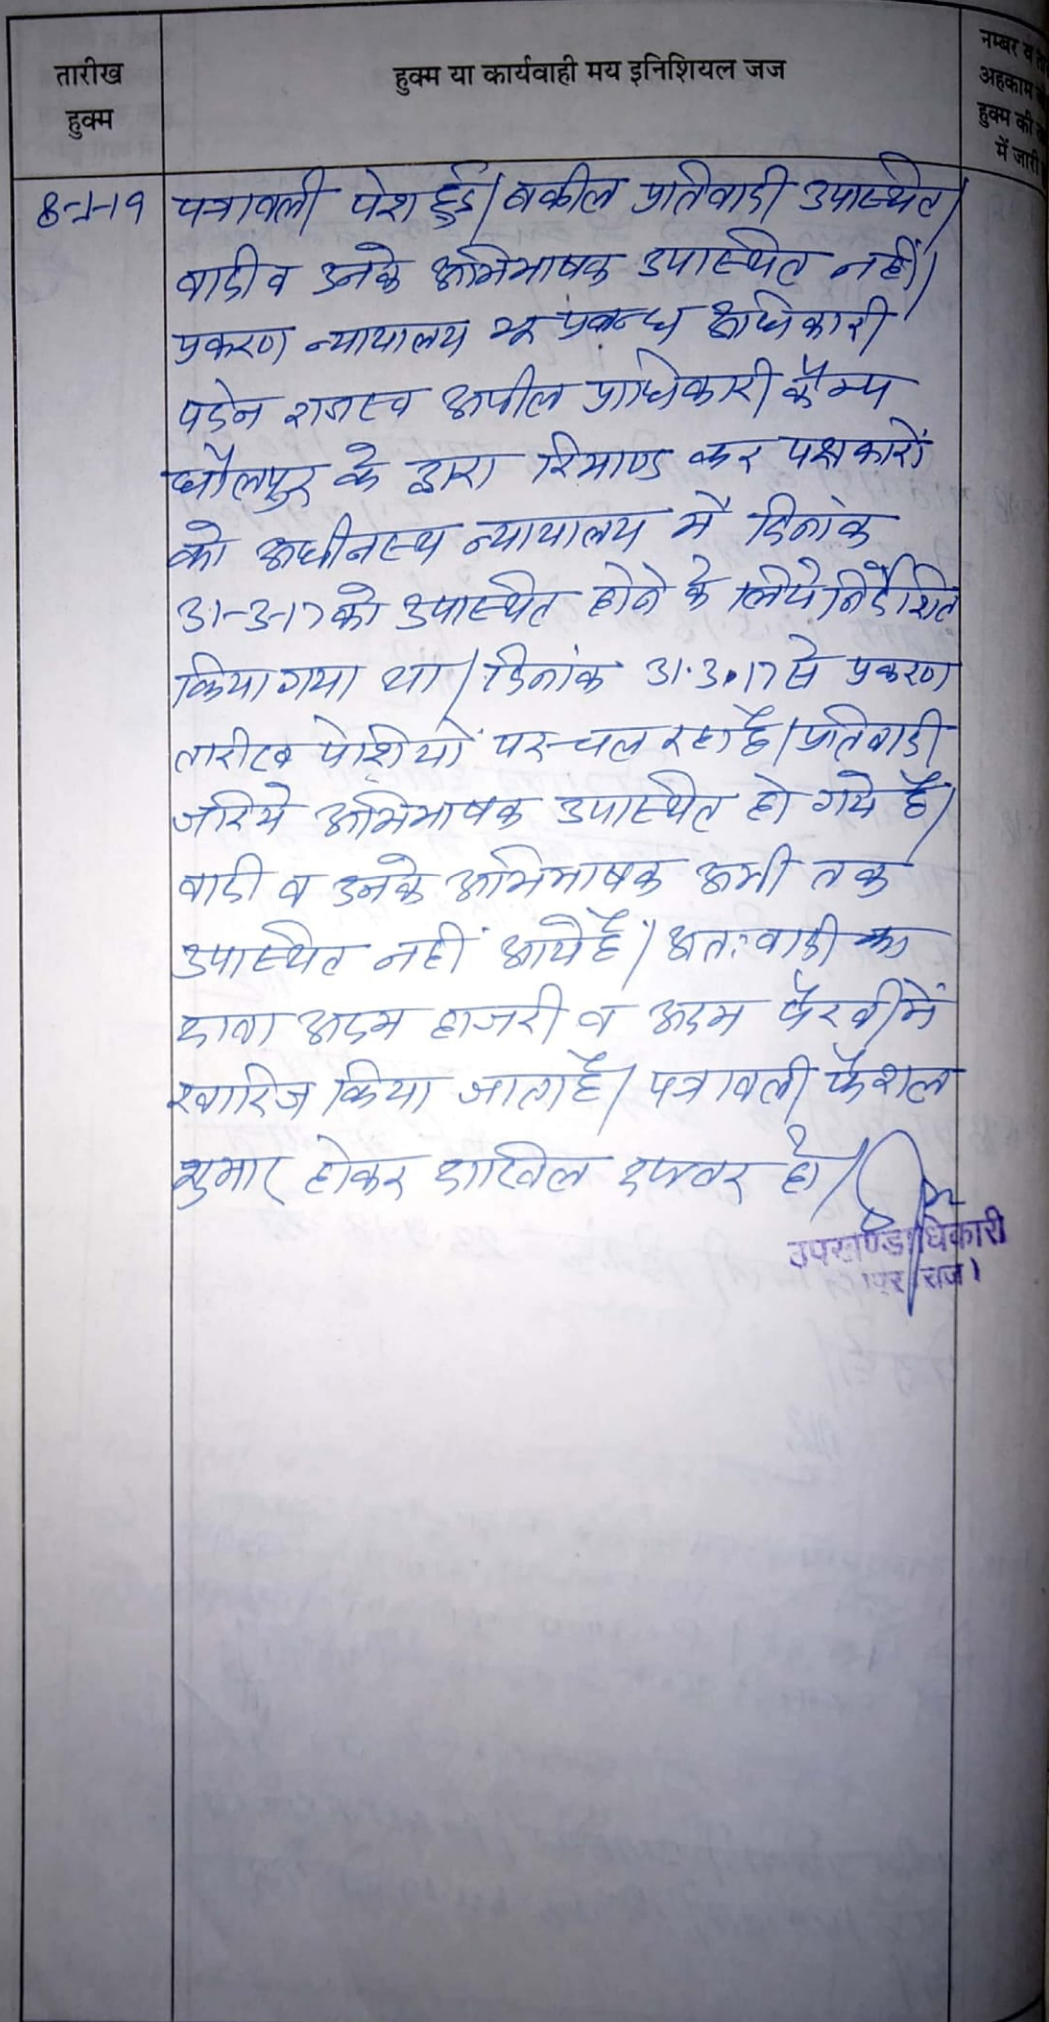 तारीख
हुक्म
हुक्म या कार्यवाही मय इनिशियल जज
नम्बर व
अहकाम
हुक्म की
में जारी
8-1-19
पत्रावली पेश हुई। वकील प्रतिवादी उपस्थित।
वादी व उनके अभिभाषक उपस्थित नहीं।
प्रकरण न्यायालय भू प्रबन्ध अधिकारी
पदेन राजस्व अपील प्राधिकारी कैम्प
धौलपुर के द्वारा रिमाण्ड कर पक्षकारों
को अधीनस्थ न्यायालय में दिनांक
31-3-17 को उपस्थित होने के लिये निर्देशित
किया गया था। दिनांक 31.3.17 से प्रकरण
तारीख पेशियों पर चल रहा है। प्रतिवादी
जरिये अभिभाषक उपस्थित हो गये हैं।
वादी व उनके अभिभाषक अभी तक
उपस्थित नहीं आये हैं। अतः वादी का
दावा अदम हाजरी व अदम पैरवी में
खारिज किया जाता है। पत्रावली फैशल
शुमार होकर दाखिल दफ्तर हो।
उपखण्डाधिकारी
राज।